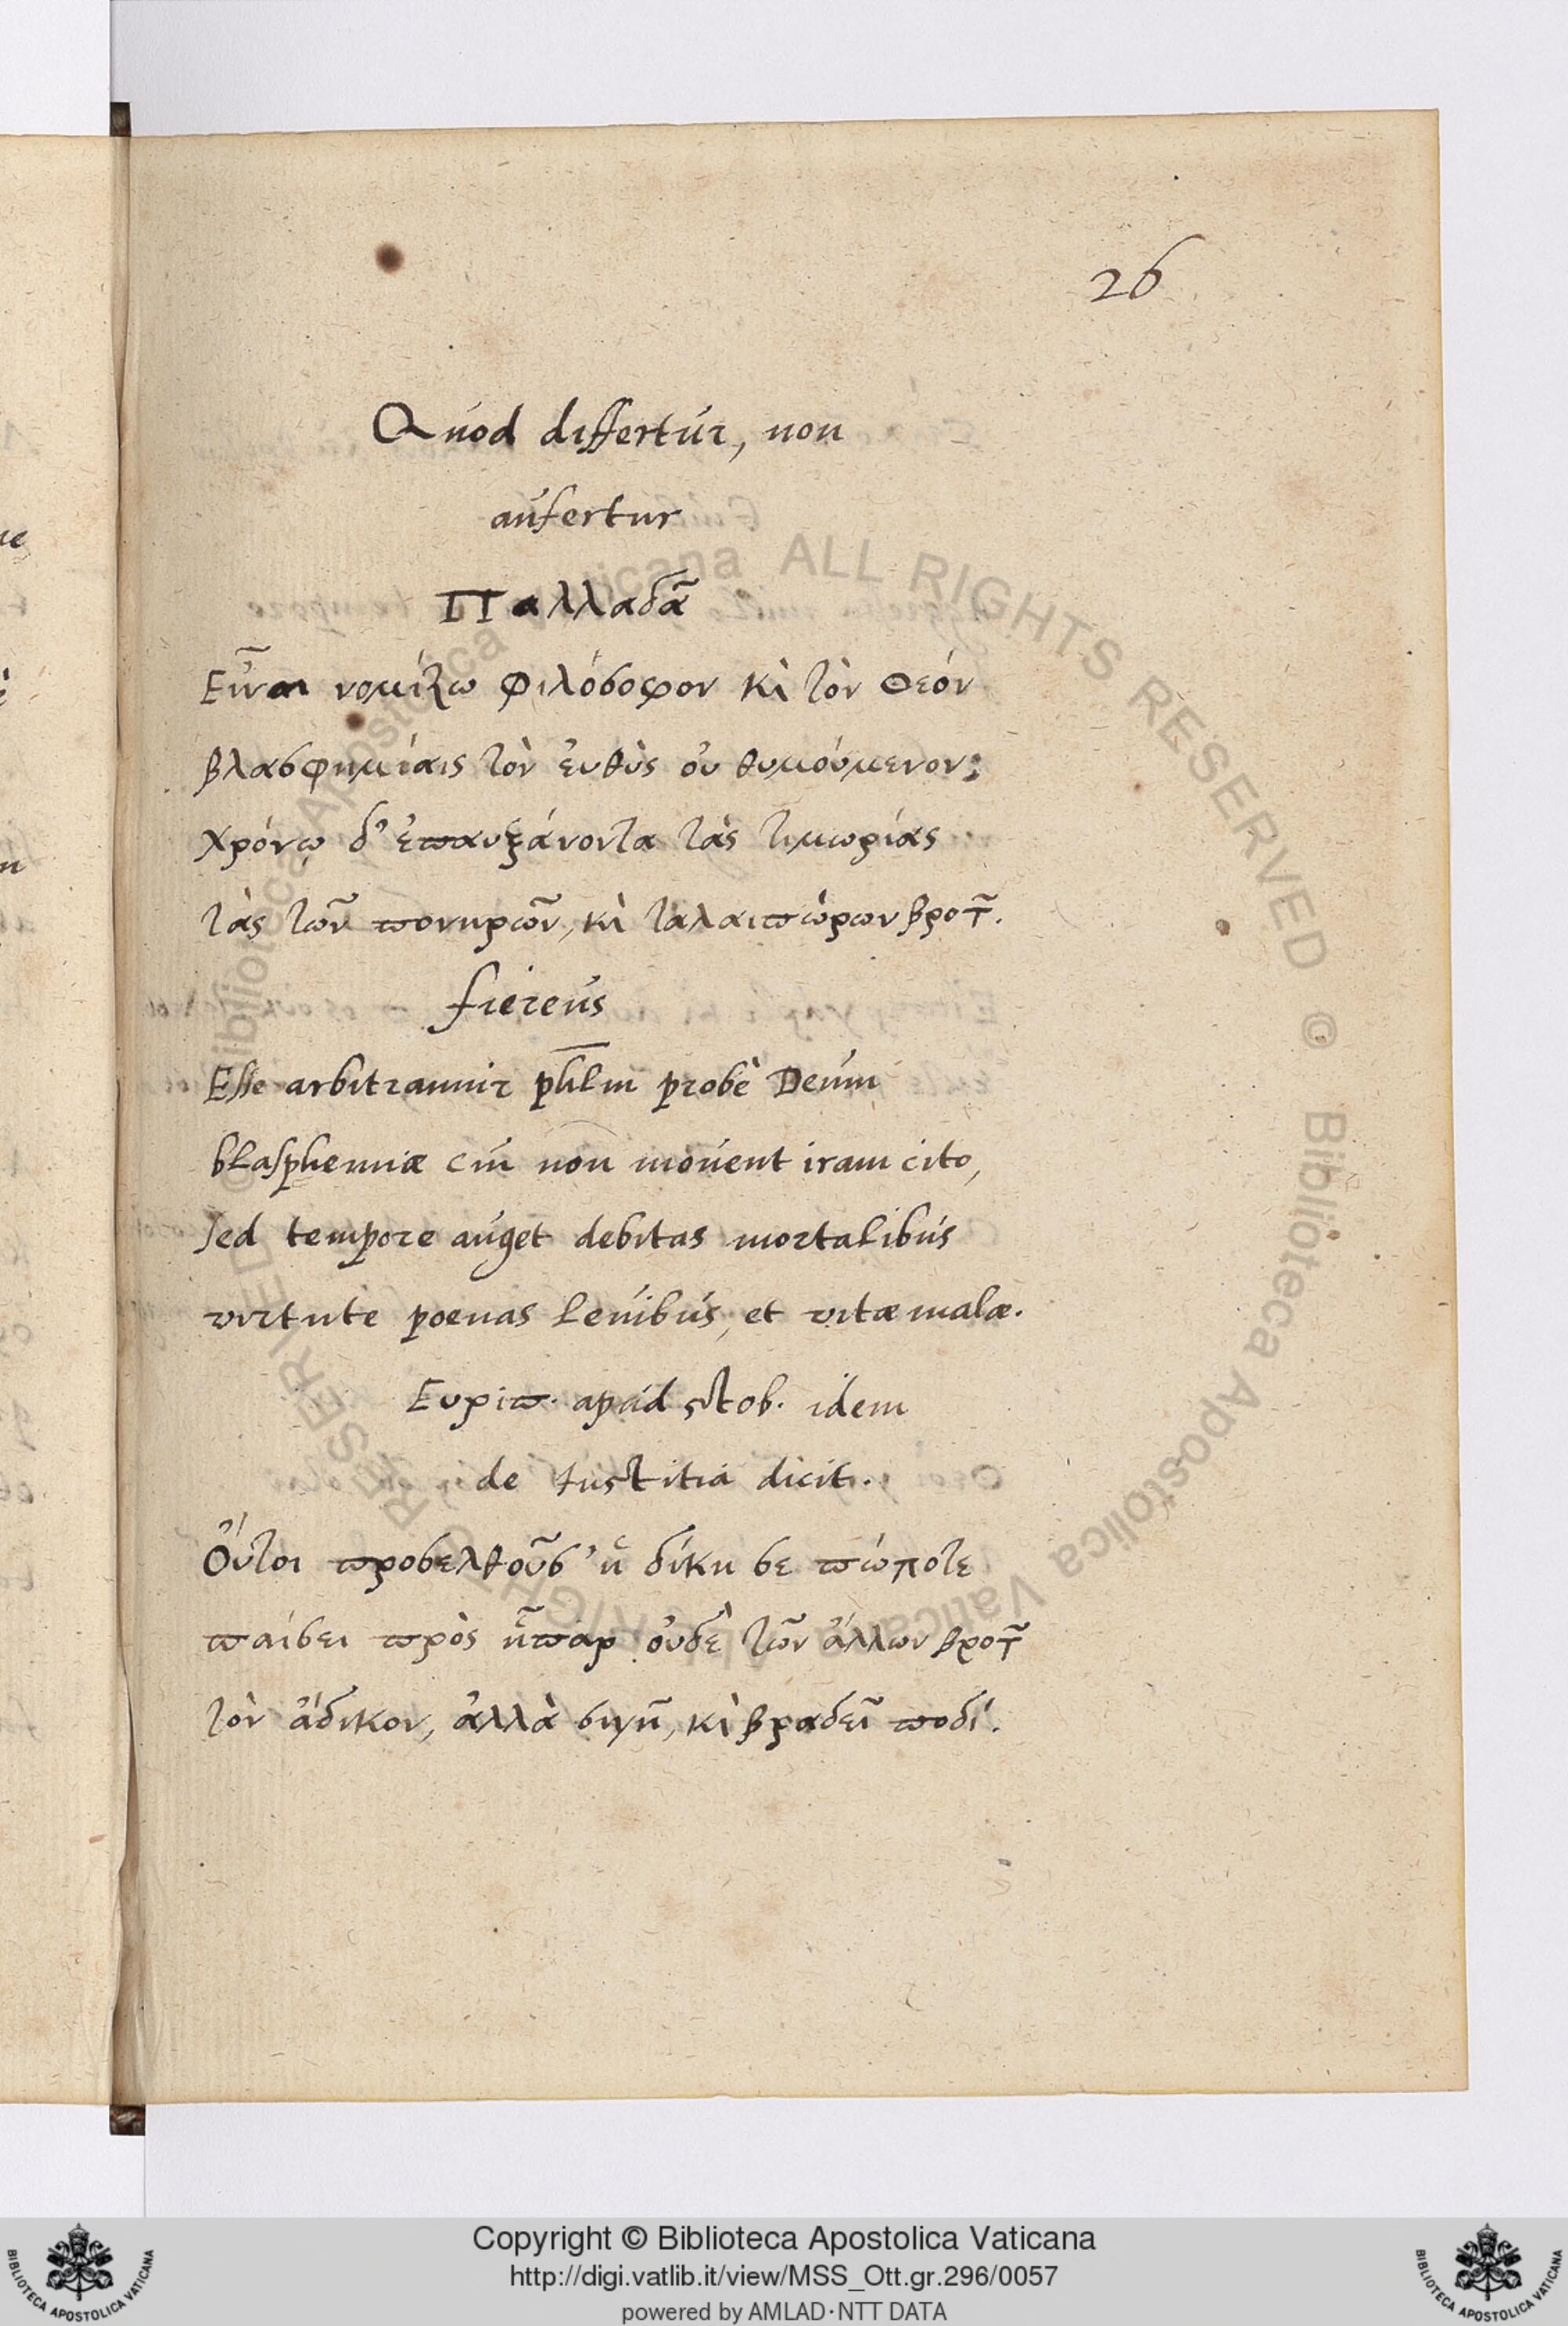 26
Quod differtur, non
aufertur
Παλλαδᾶ
Εἶναι νομίζω φιλόσοφον κὶ τὸν Θεόν
βλασφημίαις τὸν ἐυθὺς οὐ θυμούμενον;
χρόνῳ δ' ἐπαυξάνοντα τὰς τιμωρίας
τὰς τῶν πονηρῶν, κὶ ταλαιπώρων βροτ͂.
fiereus
Esse arbitramur phl̄m probè Deum
blasphemiæ cui non mouent iram cito,
sed tempore auget debitas mortalibus
virtute poenas leuibus, et vitæ malæ.
Ευριπ. apud Stob. idem
de Iustitia dicit.
Οὔτοι προσελθοῦσ' ἡ δίκη σε πώποτε
παίσει πρὸς ἧπαρ οὐδὲ τῶν ἄλλων βροτ͂
τὸν ἄδικον, ἀλλὰ σιγῇ, κὶ βραδεῖ ποδί.
© Biblioteca Apostolica Vaticana ALL RIGHTS RESERVED © Biblioteca Apostolica Vaticana ALL RIGHTS RESERVED
Copyright © Biblioteca Apostolica Vaticana
http://digi.vatlib.it/view/MSS_Ott.gr.296/0057
powered by AMLAD·NTT DATA
BIBLIOTECA APOSTOLICA VATICANA
BIBLIOTECA APOSTOLICA VATICANA